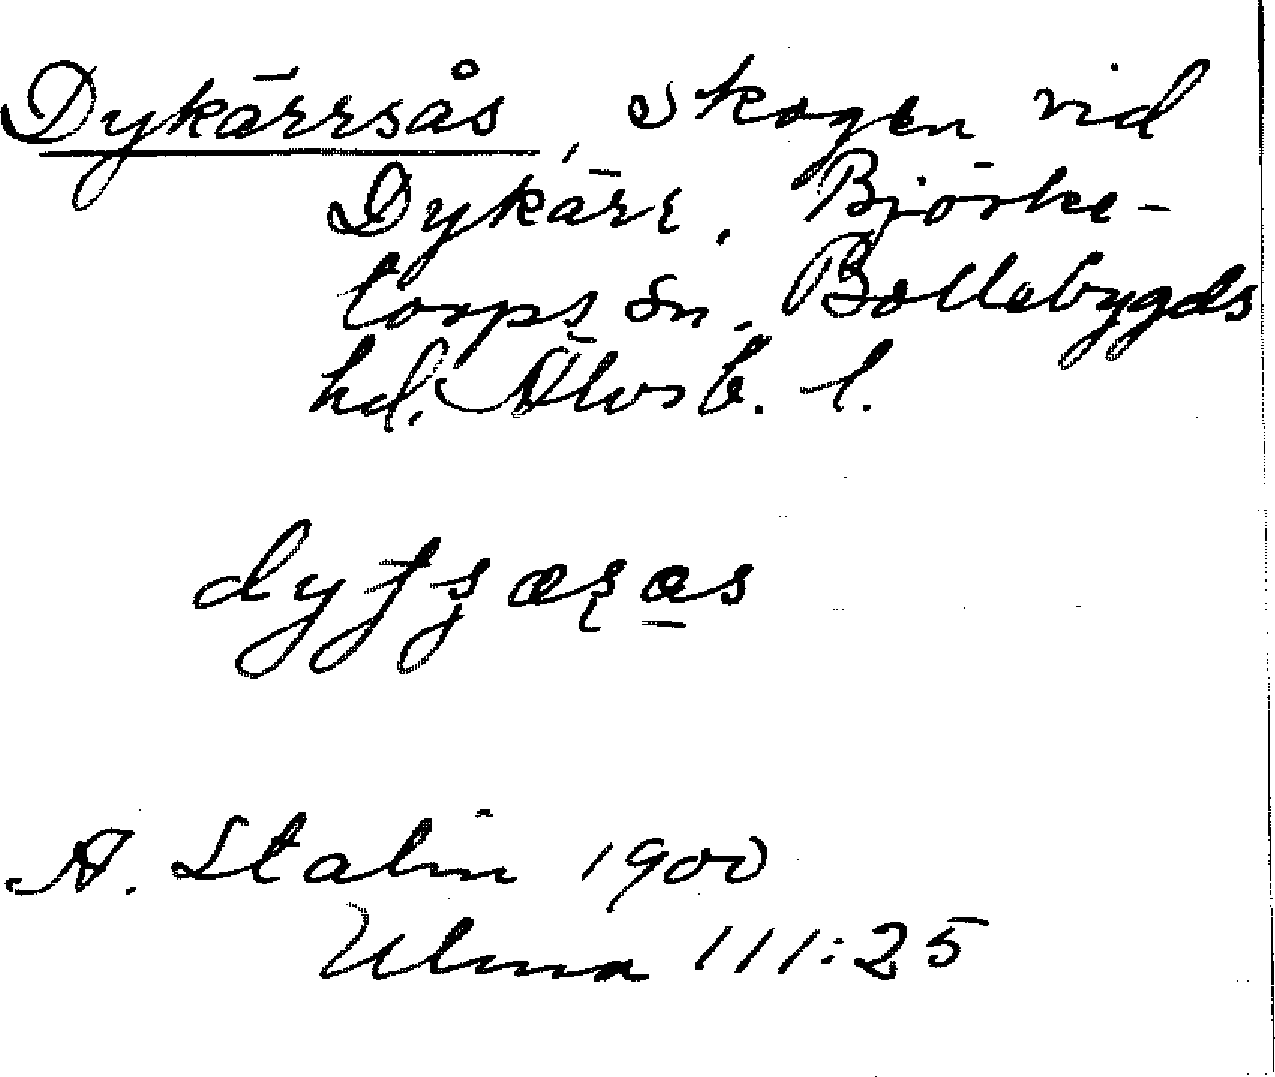 Dykärrsås, skogen vid
Dykärr. Björke-
torps sn. Bollebygds
hd. Älvsb. l.
A. Stalin 1900
Ulma 111:25